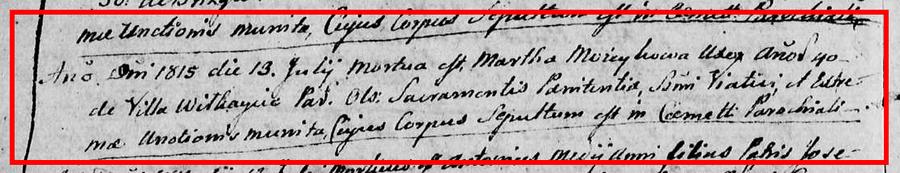 mæ Unctionis munita, Cujus Corpus Sepultum est in Cemett. Parochiali
Año Dni 1815 die 13. Julij Mortua est Martha Uxor Años 40
de Villa Par. Ols. Sacramentis Pænitentiæ, Ssmi Viatici, et Extre-
mæ Unctionis munita, Cujus Corpus Sepultum est in Cæmett. Parochiali.
Antonius filius Patris Jose-